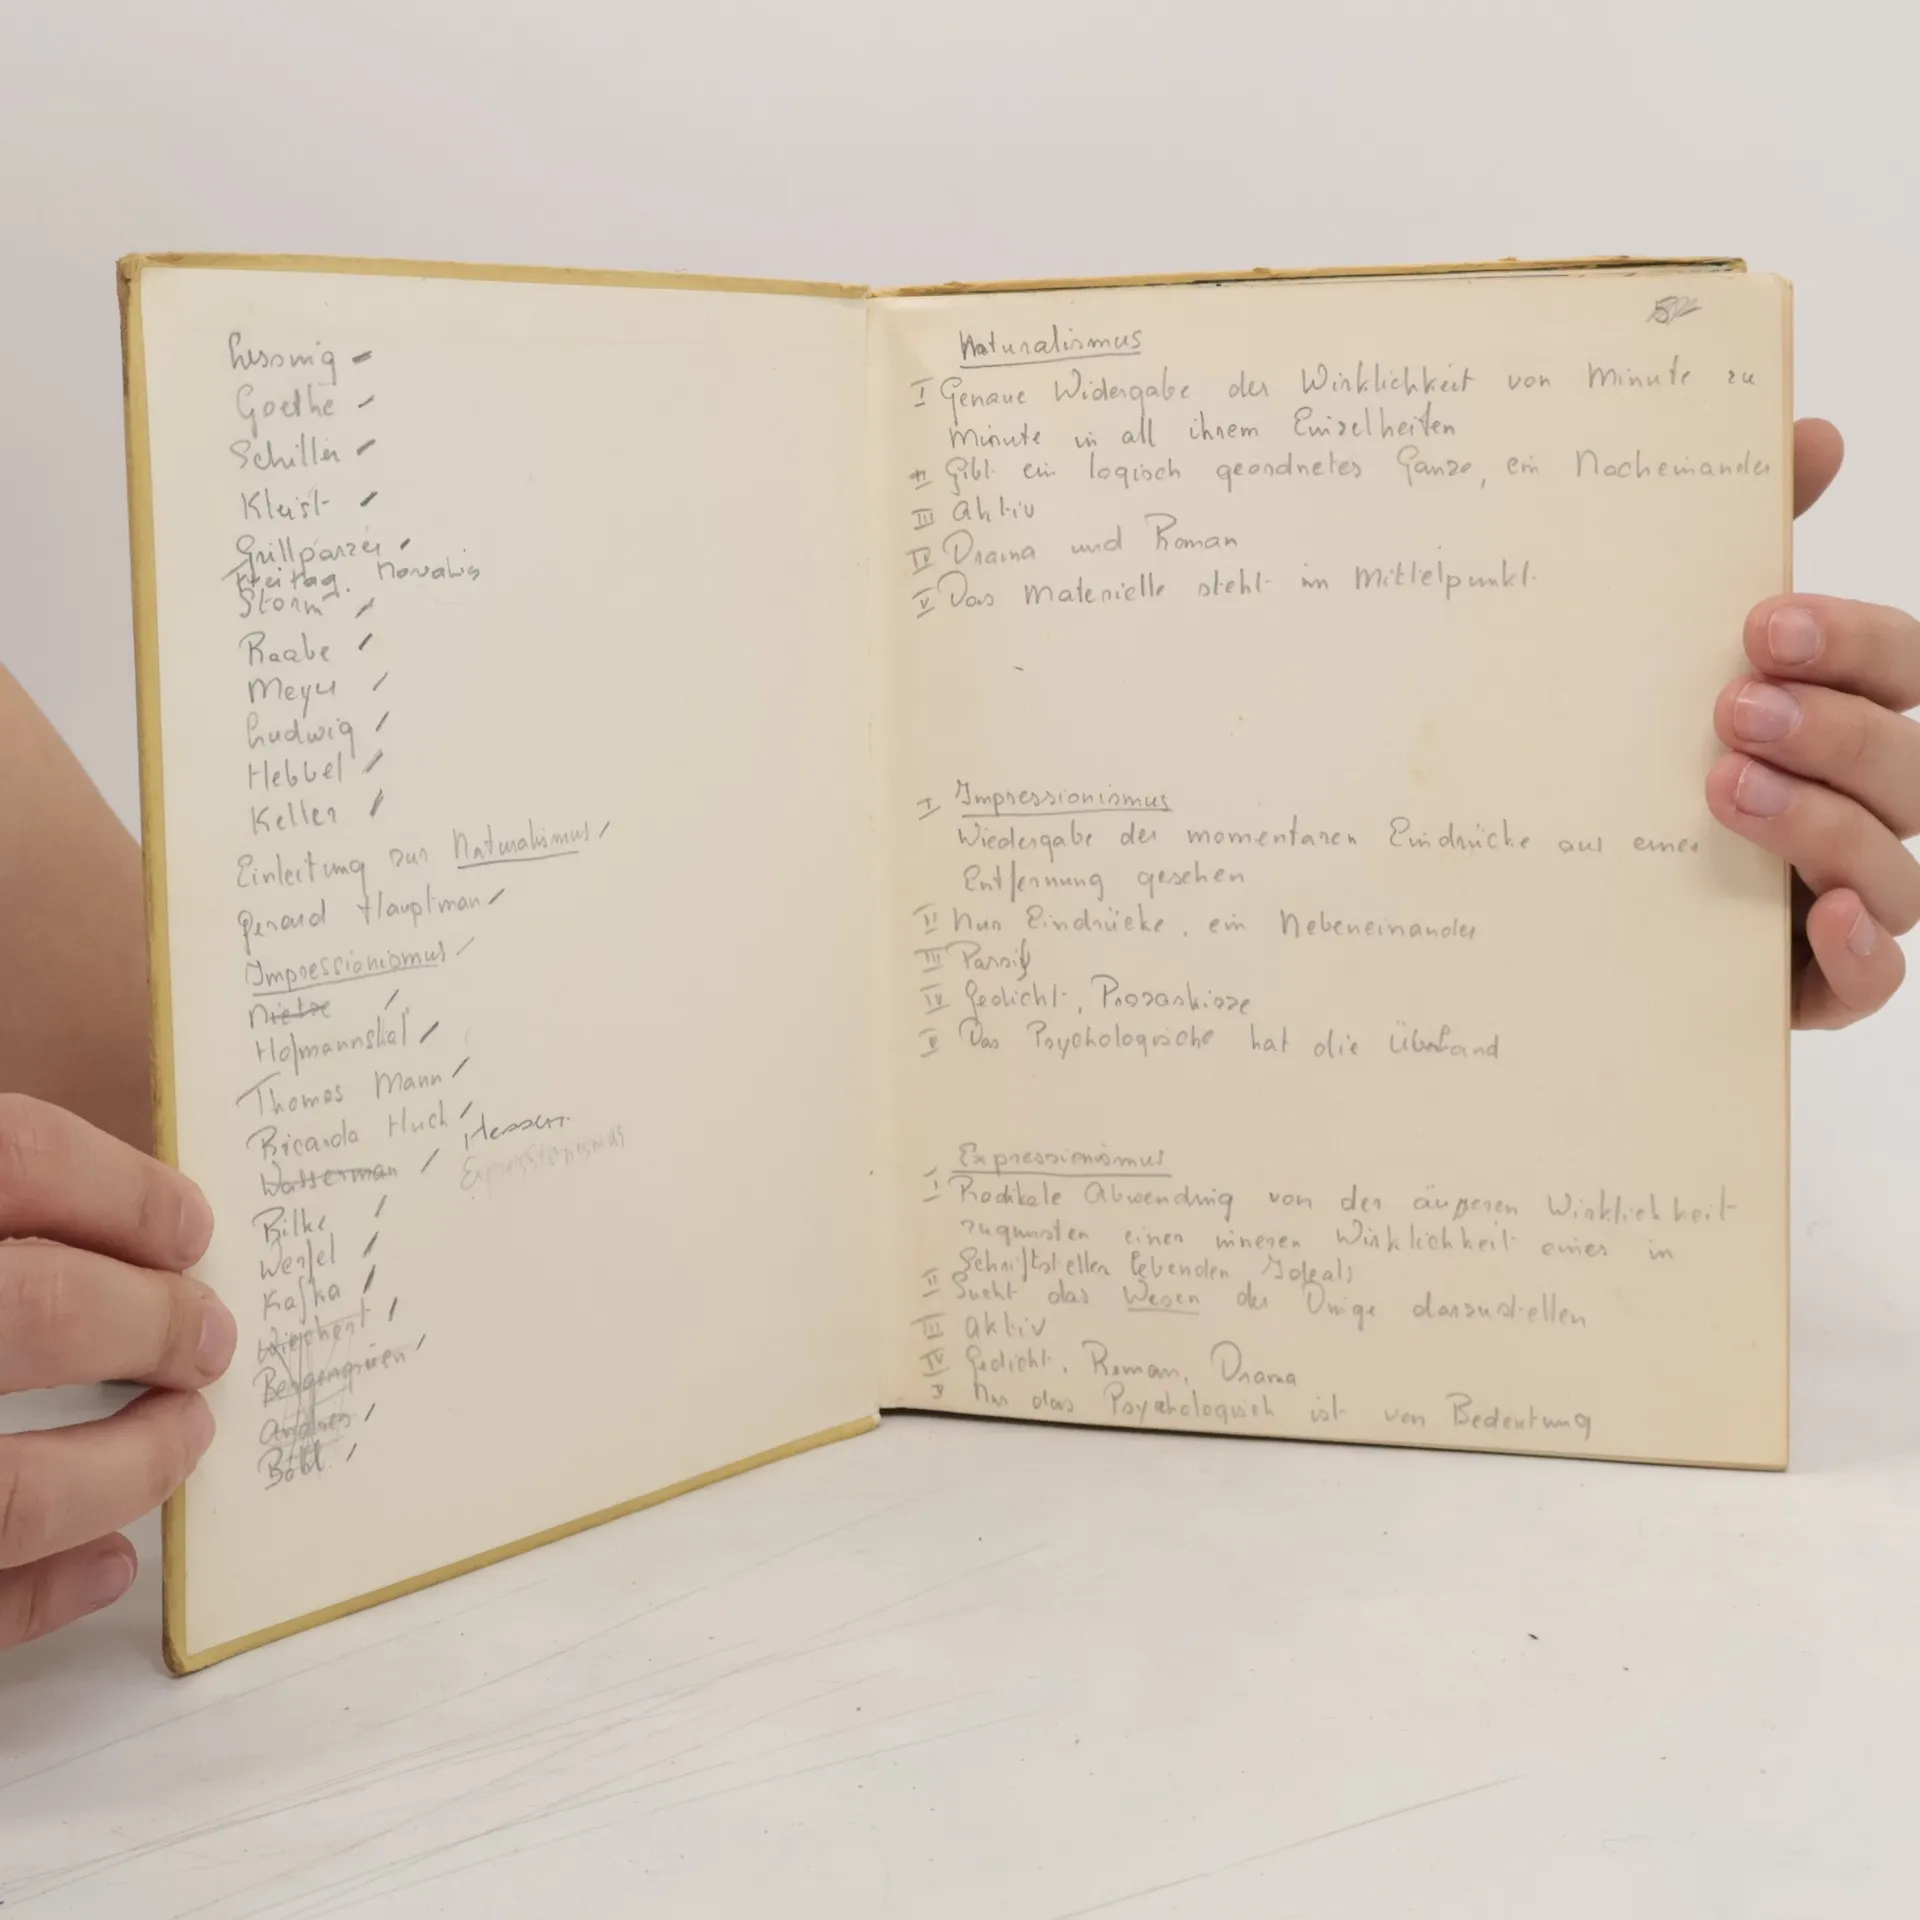 Lessing
Goethe
Schiller
Kleist
Grillparzer
Freitag. Novalis
Storm
Raabe
Meyer
Ludwig
Hebbel
Keller
Einleitung zur Naturalismus
Gerard Hauptman
Impressionismus
Nietze
Hofmannsthal
Thomas Mann
Ricarda Huch
Hessen
Wasserman
Expressionismus
Rilke
Werfel
Kafka
Wiechert
Bergengruen
Andres
Böll
Naturalismus
I Genaue Widergabe der Wirklichkeit von Minute zu
Minute in all ihrem Einzelheiten
II Gibt ein logisch geordnetes Ganze, ein Nacheinander
III Aktiv
IV Drama und Roman
V Das Materielle steht im Mittelpunkt
I Impressionismus
Wiedergabe der momentaren Eindrücke aus einer
Entfernung gesehen
II Nur Eindrücke, ein Nebeneinander
III Passif
IV Gedicht, Prosaskizze
V Das Psychologische hat die
Expressionismus
I Radikale Abwendung von der äußeren Wirklichkeit
zugunsten einer inneren Wirklichkeit eines in
Schriftsteller lebenden Ideals
II Sucht das Wesen der Dinge darzustellen
III Aktiv
IV Gedicht, Roman, Drama
V Nur das Psychologisch ist von Bedeutung